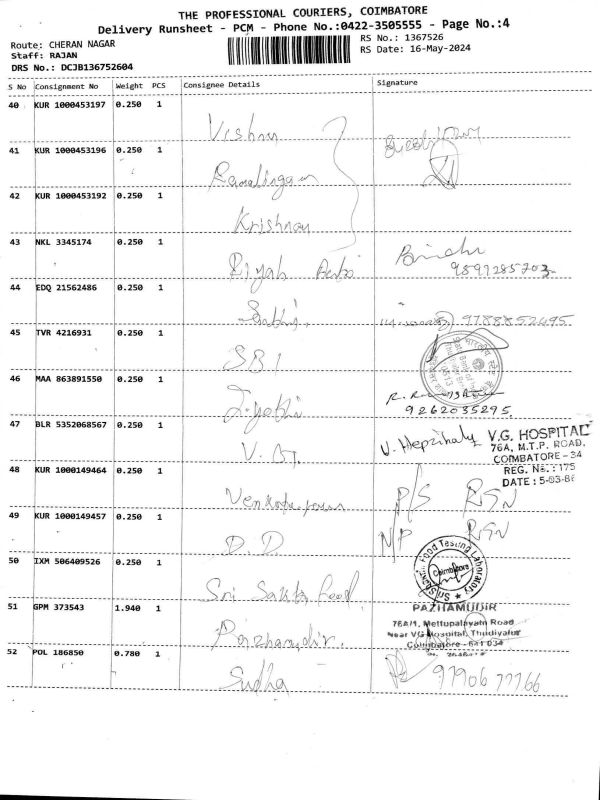 THE PROFESSIONAL COURIERS, COIMBATORE
Delivery Runsheet - PCM - Phone No.:0422-3505555 - Page No.:4
Route: CHERAN NAGAR
Staff: RAJAN
DRS No.: DCJB136752604
RS No.: 1367526
RS Date: 16-May-2024
S No Consignment No Weight PCS Consignee Details Signature
40 KUR 1000453197 0.250 1
Vishnu
41 KUR 1000453196 0.250 1
Ramalingam
42 KUR 1000453192 0.250 1
Krishnan
43 NKL 3345174 0.250 1
Riyah
Bindhu
9591285703
44 EDQ 21562486 0.250 1
9788852495
45 TVR 4216931 0.250 1
SBI
46 MAA 863891550 0.250 1
Jyothi
9262035295
47 BLR 5352068567 0.250 1
V. G.
V.G. HOSPITAL
76A, M.T.P. ROAD,
COIMBATORE - 34
REG. No. : 175
DATE : 5-03-86
48 KUR 1000149464 0.250 1
P/S RSN
49 KUR 1000149457 0.250 1
D.D
N/P RSN
50 IXM 506409526 0.250 1
Sri Sakthi Food
Food Testing Laboratory
Coimbatore
51 GPM 373543 1.940 1
Pazhamudir
PAZHAMUDIR
76A/1, Mettupalayam Road
Near VG Hospital, Thudiyalur
Coimbatore - 641 034
52 POL 186850 0.780 1
Sudha
9790677766